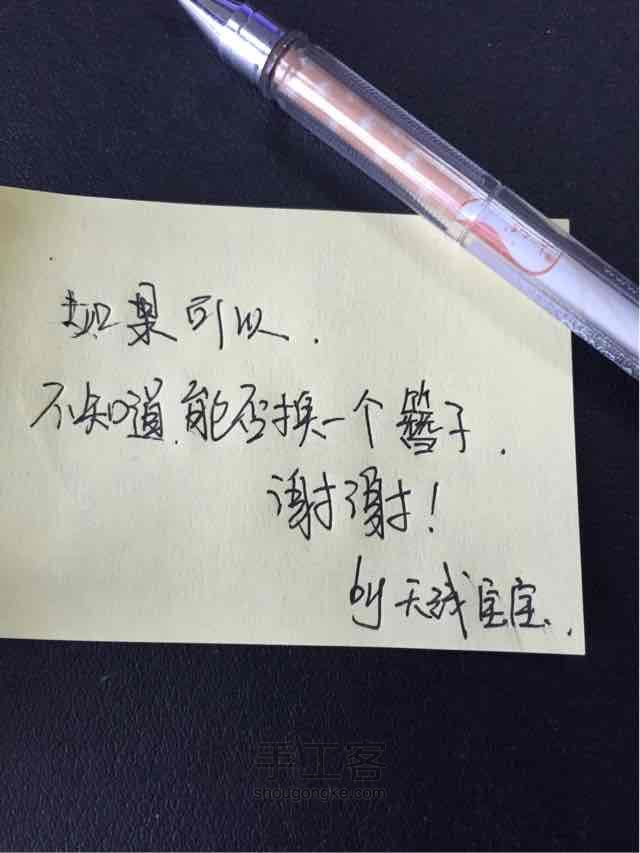 如果可以.
不知道,能否换一个簪子.
谢谢!
by 天线宝宝..
手工客
shougongke.com